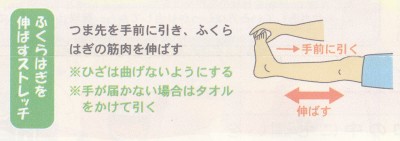 ふくらはぎを
伸ばすストレッチ
つま先を手前に引き、ふくら
はぎの筋肉を伸ばす
※ひざは曲げないようにする
※手が届かない場合はタオル
をかけて引く
手前に引く
伸ばす